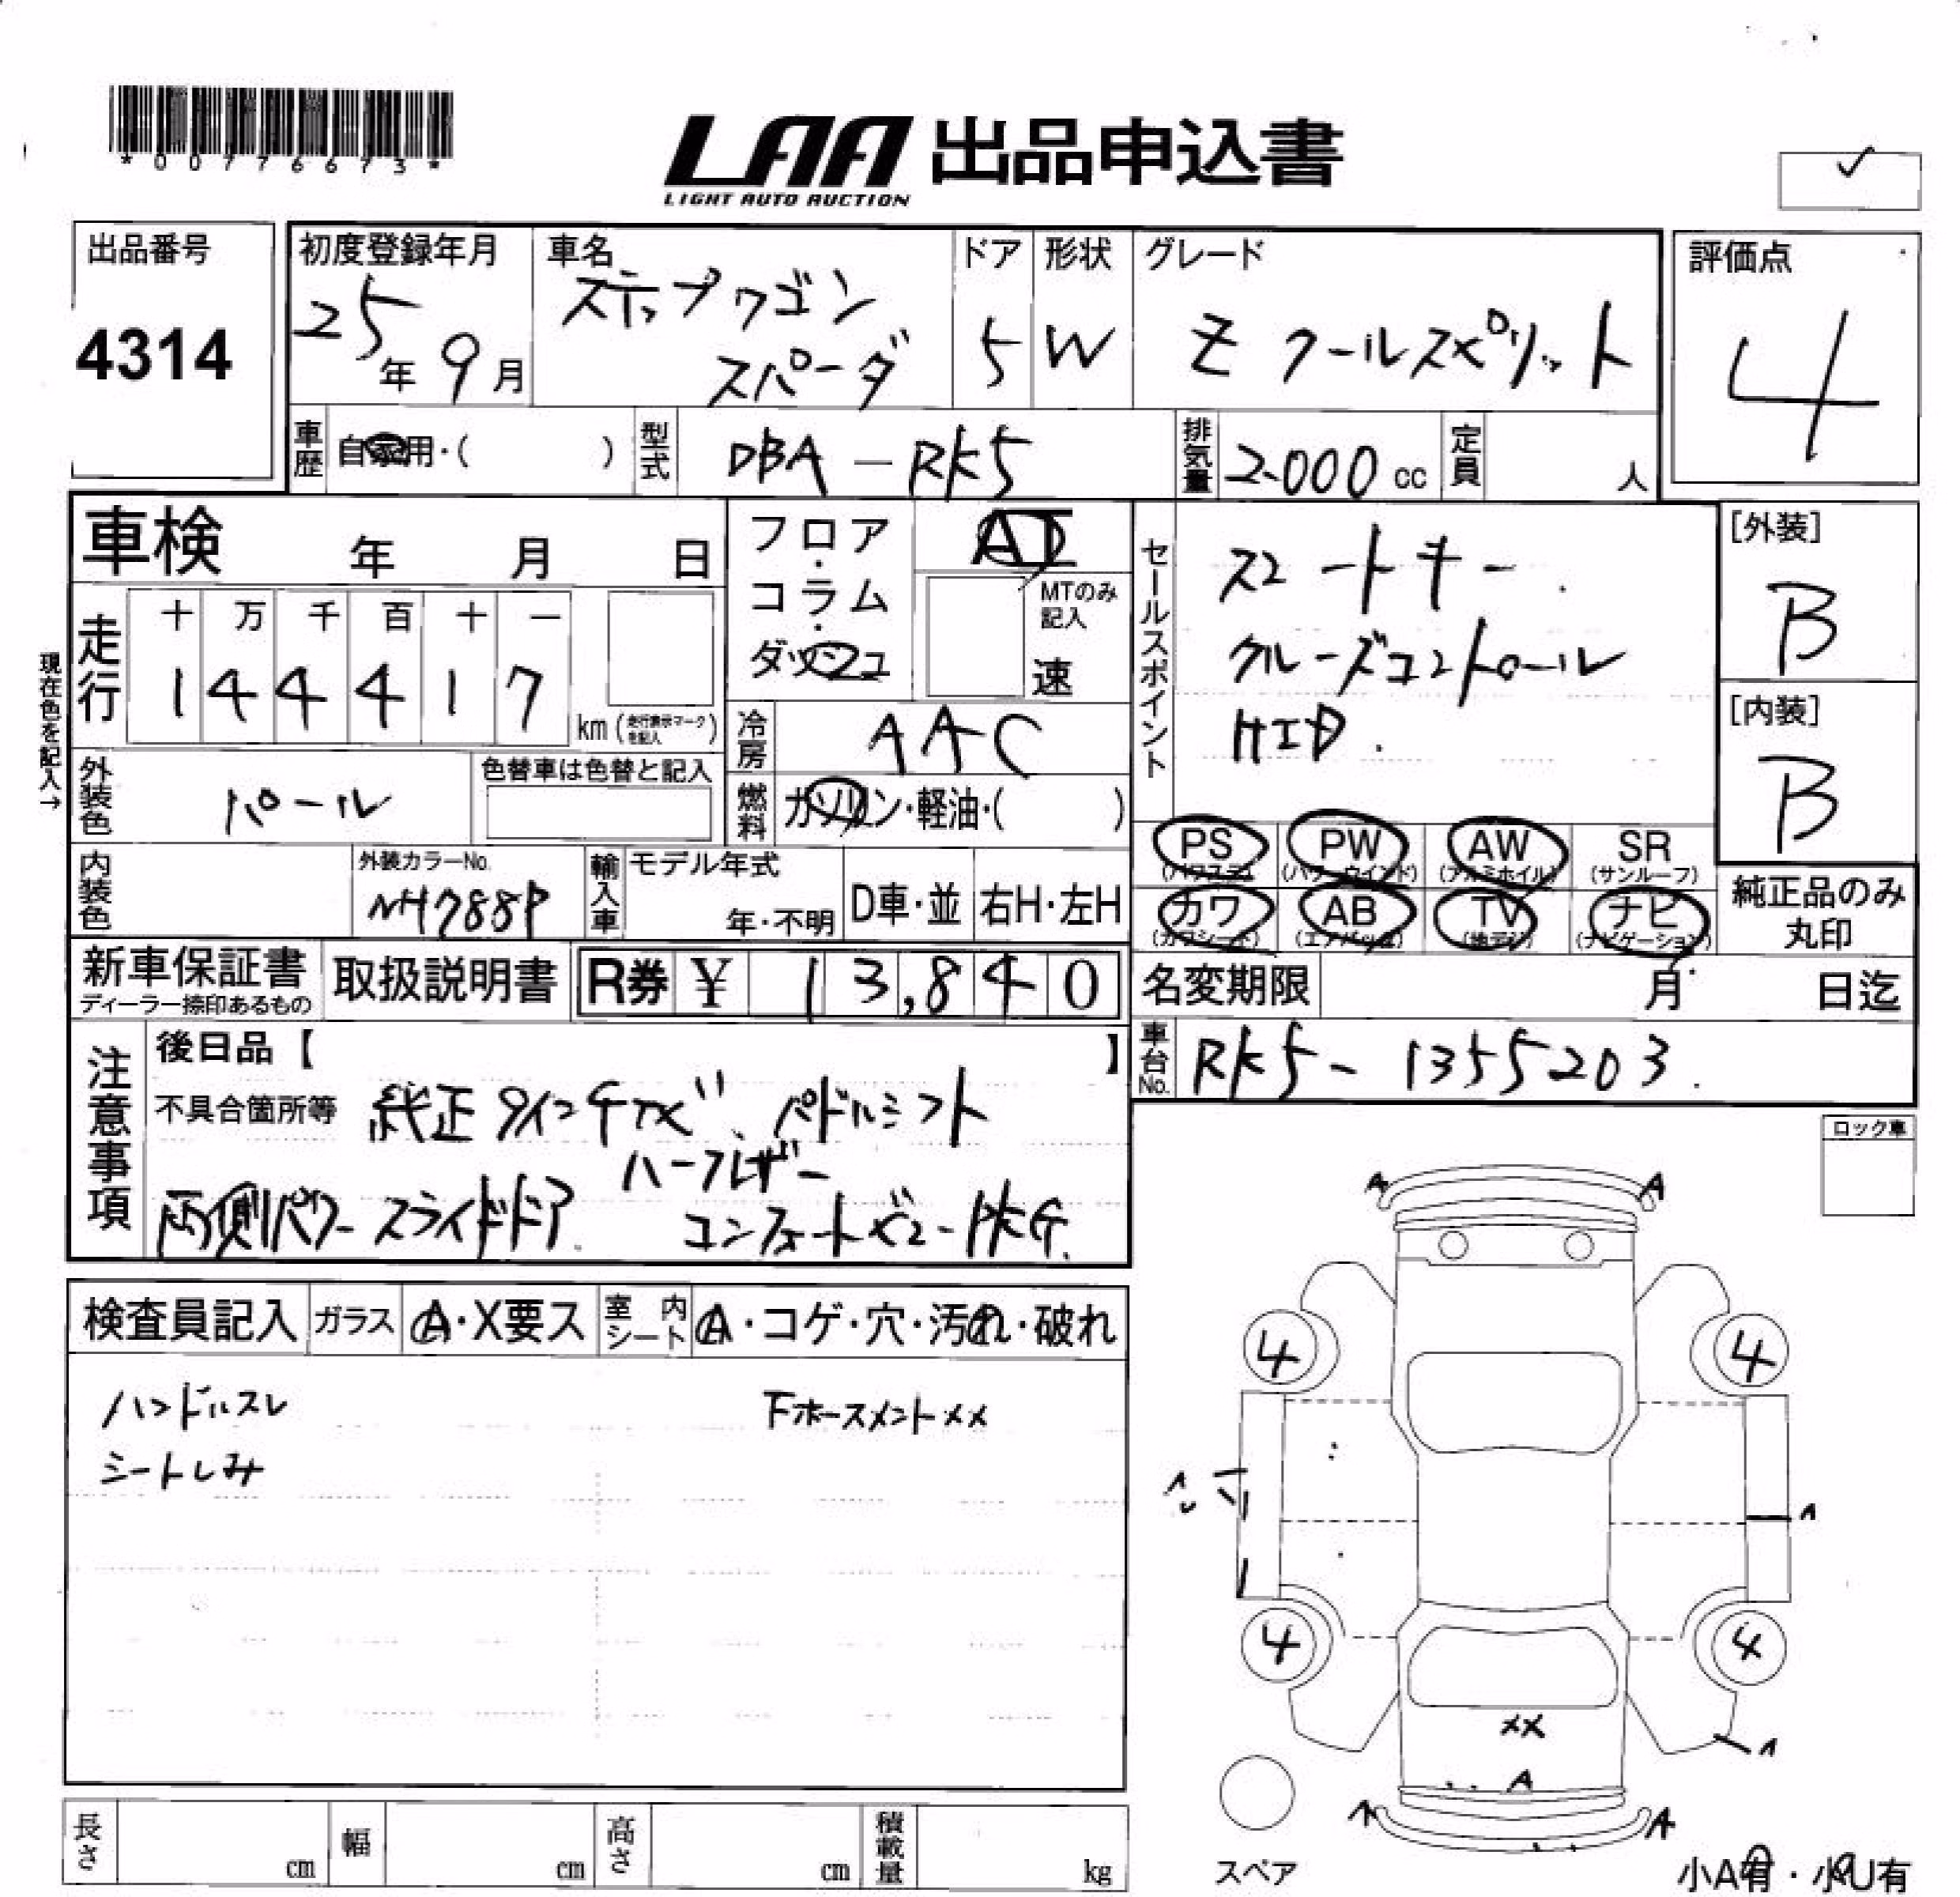 *00776673*
LAA 出品申込書
LIGHT AUTO AUCTION
出品番号
4314
初度登録年月
25年 9月
車名
ステップワゴン
スパーダ
ドア
5
形状
W
グレード
Z クールスピリット
評価点
4
車歴
自家用・( )
型式
DBA-RK5
排気量
2000 cc
定員
人
車検 年 月 日
走行
十 万 千 百 十 一
1 4 4 4 1 7
km (走行表示マークを記入)
現在色を記入→
フロア・
コラム・
ダッシュ
AT
MTのみ
記入
速
冷房
AAC
燃料
ガソリン・軽油・( )
外装色
パール
色替車は色替と記入
内装色
外装カラーNo.
NH788P
輸入車
モデル年式
年・不明
D車・並
右H・左H
セールスポイント
スマートキー.
クルーズコントロール
HID.
[外装]
B
[内装]
B
PS PW AW SR
(パワステ) (パワーウインド) (アルミホイル) (サンルーフ)
カワ AB TV ナビ
(カワシート) (エアバッグ) (地デジ) (ナビゲーション)
純正品のみ
丸印
新車保証書
ディーラー捺印あるもの
取扱説明書
R券 ¥ 13,840
名変期限 月 日迄
車台No.
RK5-1355203.
注意事項
後日品【 】
不具合箇所等 純正9インチナビ、パドルシフト
ハーフレザー
両側パワースライドドア. コンフォートビューPKG.
ロック車
検査員記入
ガラス
A・X要ス
室内シート
A・コゲ・穴・汚れ・破れ
ハンドルスレ
下ホースメントXX
シートしみ
A A
4 4
4 4
XX
A
A A
スペア
小A有・小U有
長さ cm
幅 cm
高さ cm
積載量 kg